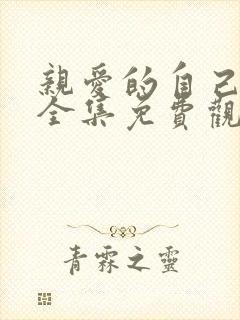 親愛的自己
全集免費觀
青霖之靈